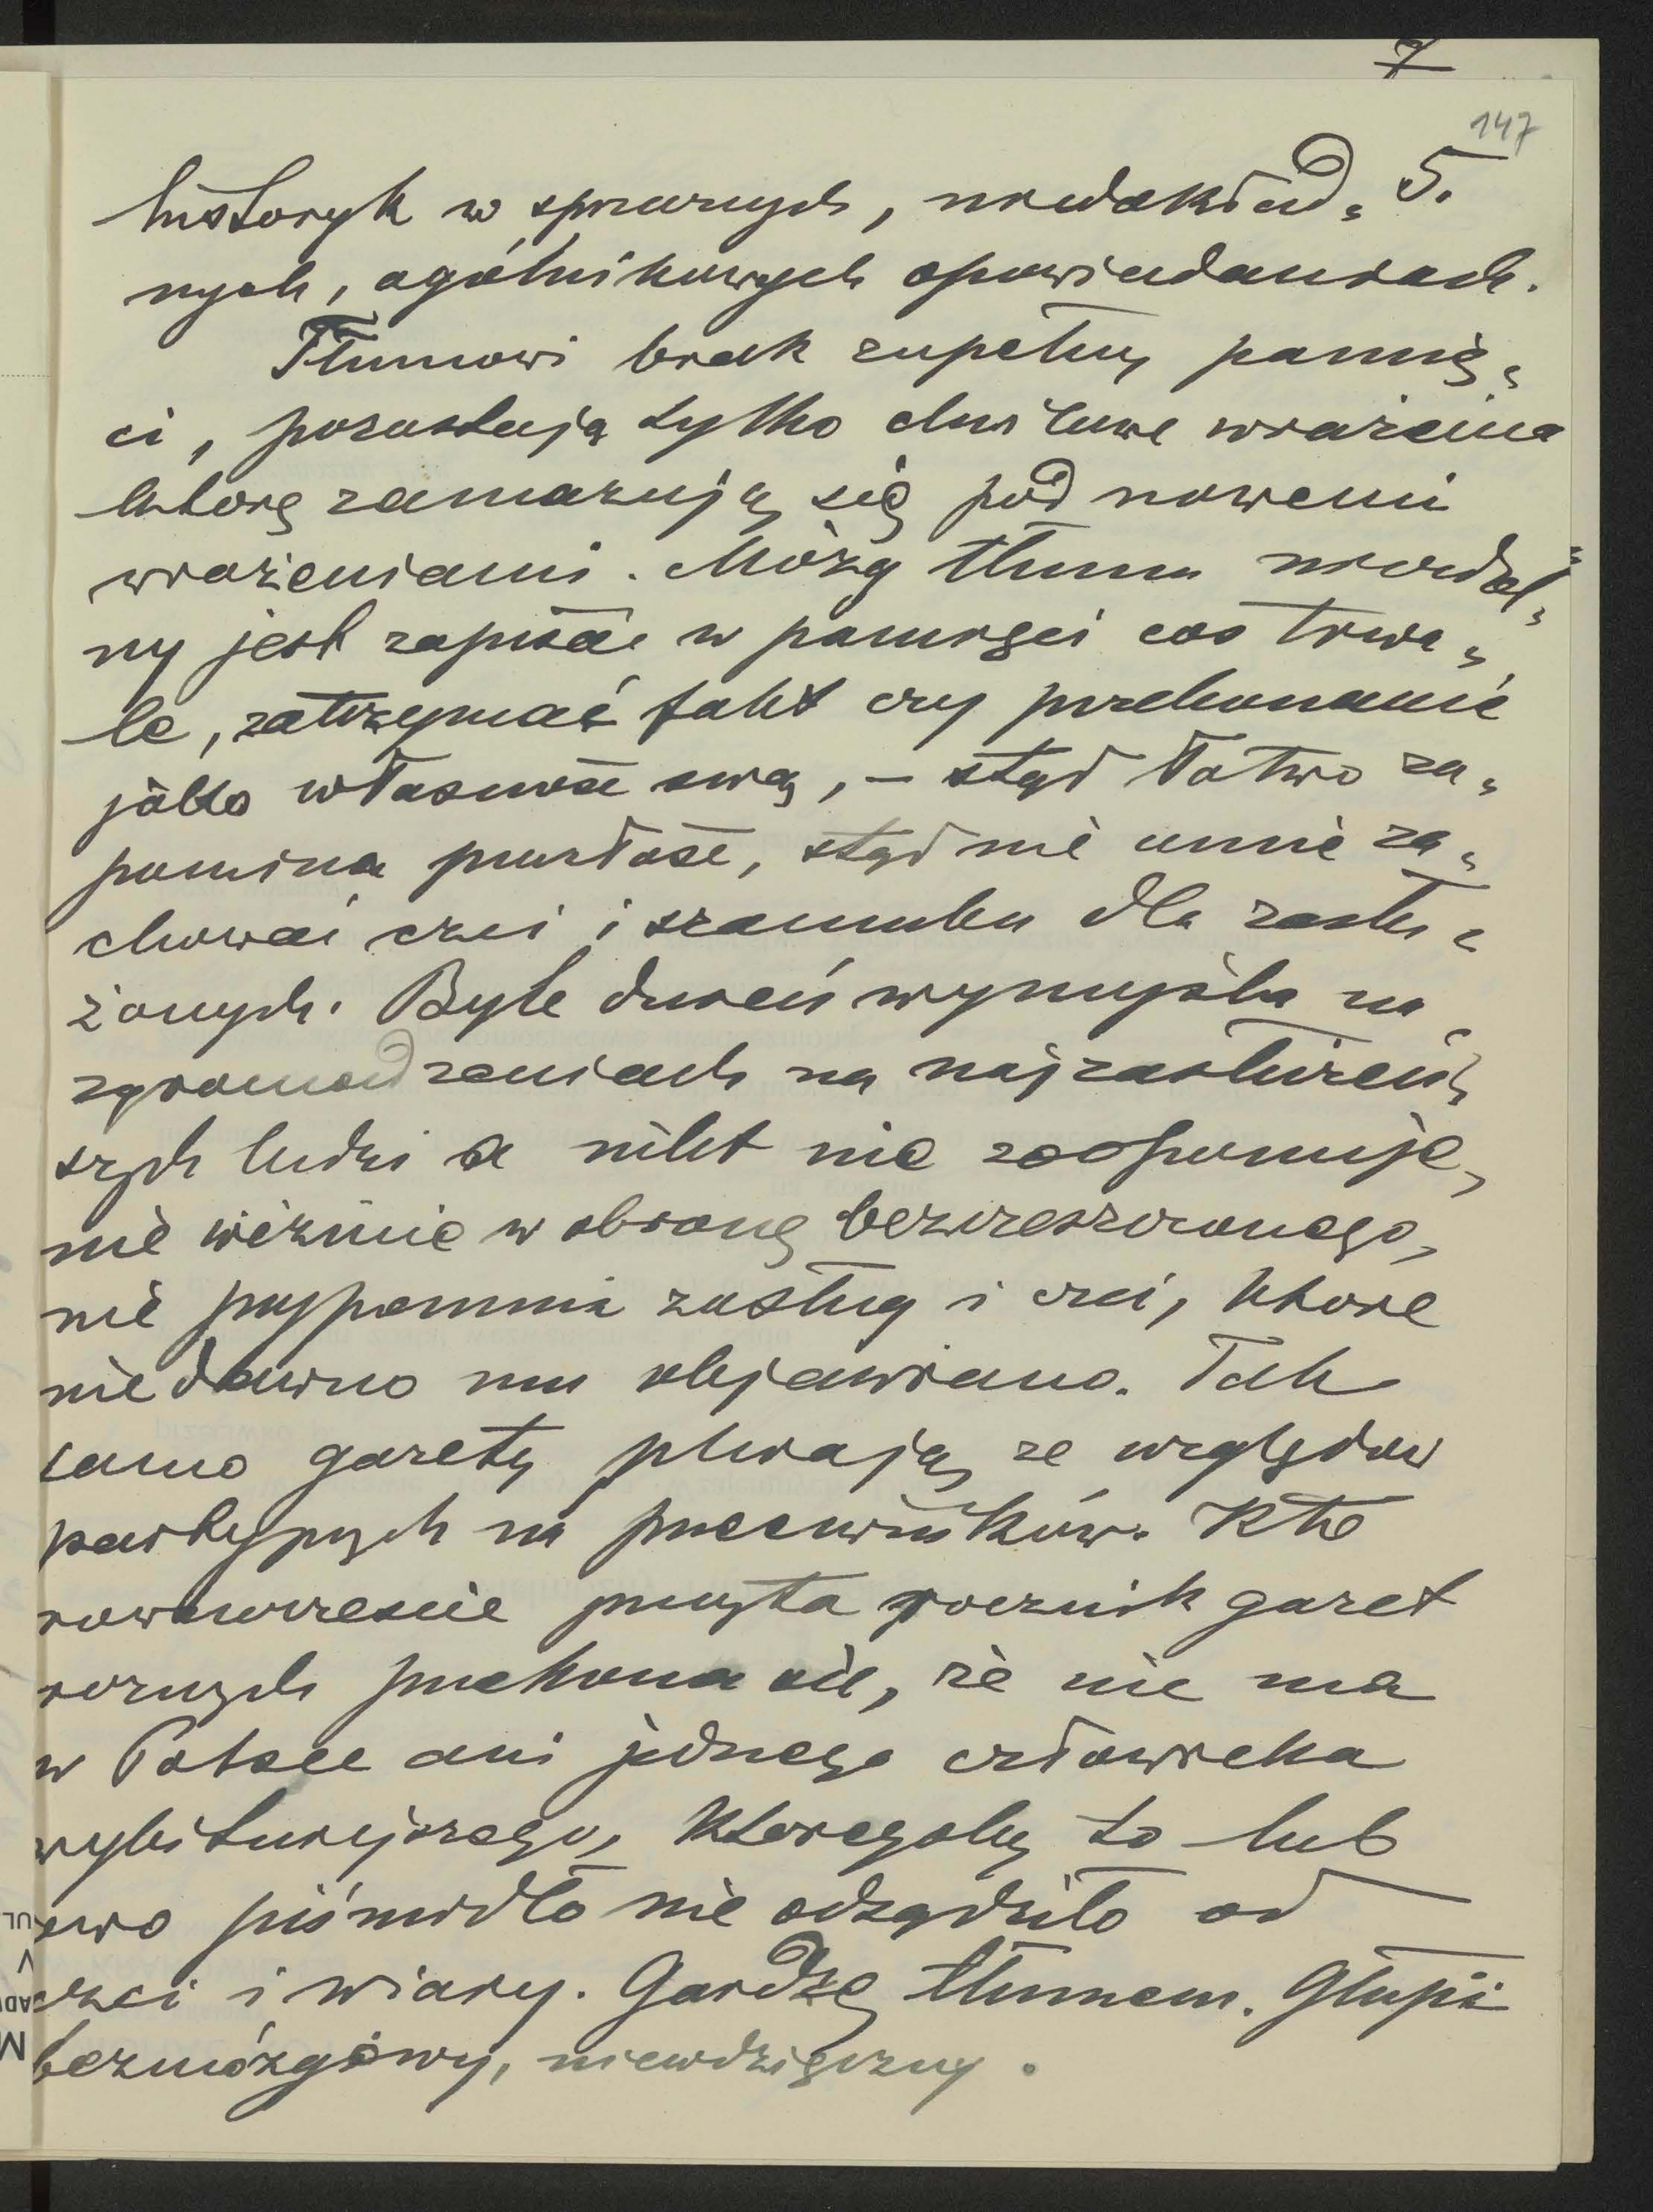 7
147
historyk w spornych, niedokład= 5.
nych, ogólnikowych opowiadaniach.
Tłumowi brak zupełny pamię=
ci, pozostają tylko chwilowe wrażenia
które zamazują się pod nowemi
wrażeniami. Mózg tłumu niezdol=
ny jest zapisać w pamięci coś trwa=
le, zatrzymać fakt czy przekonanie
jako własność swą, – stąd łatwo za=
pomina przeszłość, stąd nie umie za=
chować czci i szacunku dla zasłu=
żonych. Byle dureń wymyśla na
zgromadzeniach na najzasłużeń=
szych ludzi a nikt nie zaoponuje,
nie weźmie w obronę bezczeszczonego,
nie przypomni zasług i czci, które
niedawno mu objawiano. Tak
samo gazety plwają ze względów
partyjnych na przeciwników. Kto
równocześnie przeczyta rocznik gazet
różnych przekona się, że nie ma
w Polsce ani jednego człowieka
wybitniejszego, któregoby to lub
owo pismidło nie odsądziło od
czci i wiary. Gardzę tłumem. Głupi
bezmózgowy, niewdzięczny.